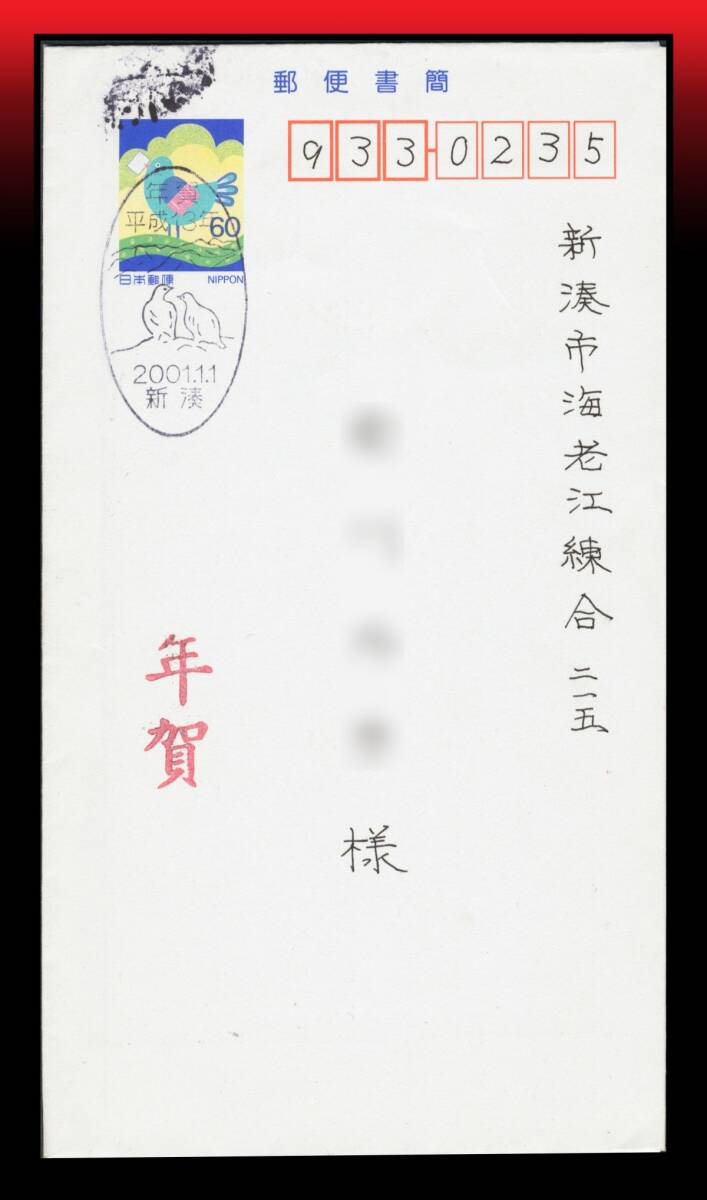 郵便書簡
933-0235
年賀
平成13年
60
日本郵便 NIPPON
2001.1.1
新湊
新湊市海老江練合二一五
様
年賀